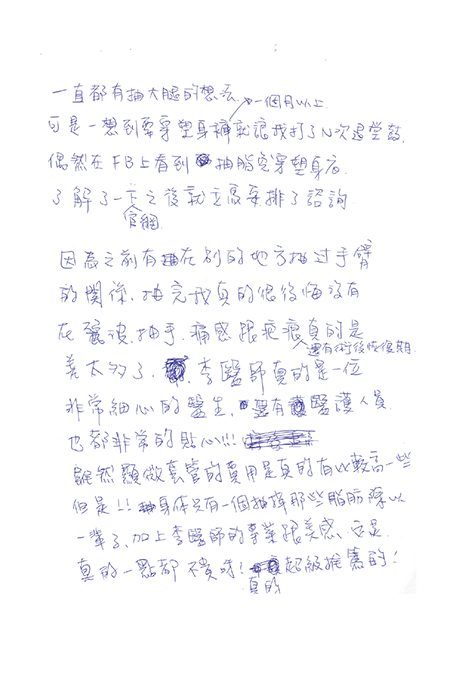 一直都有抽大腿的想法.
一個月以上
可是一想到要穿塑身褲就讓我打了N次退堂鼓.
偶然在FB上看到抽脂免穿塑身衣.
了解了一下之後就立刻安排了諮詢.
官網
因為之前有抽在別的地方抽过手臂
的關係.抽完我真的很後悔沒有
在麗波抽手.痛感跟疤痕真的是
還有術後恢復期.
差太多了.李醫師真的是一位
非常細心的醫生.還有醫護人員
也都非常的貼心!!!
雖然顯微套管的費用是真的有比較高一些
但是!!身体只有一個抽掉那些脂肪深以
一輩子,加上李醫師的專業跟美感.
真的一點都不貴呀!超級推薦的!
真的